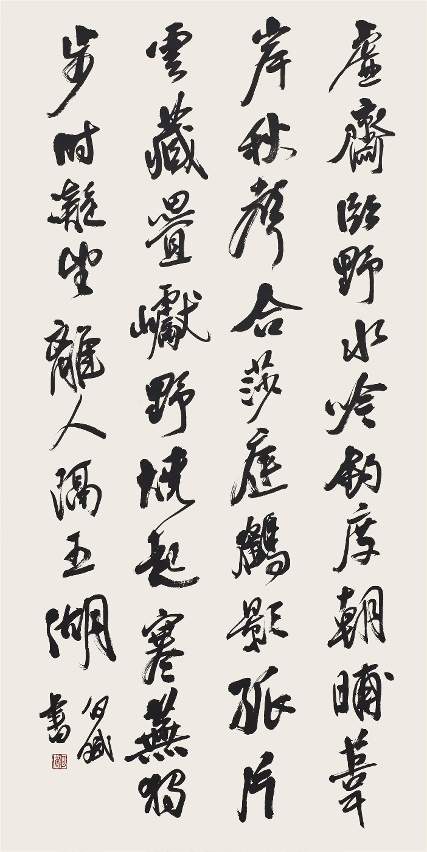 虛齋臨野水吟釣度朝晡葦
岸秋聲合莎庭鶴影孤片
雲藏疊巘野燒起寒蕪獨
步时凝望離人隔五湖
書